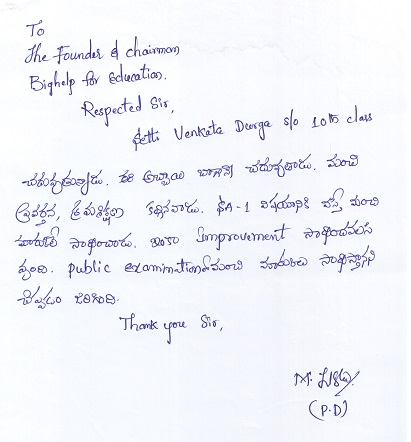 To
The Founder & chairman
Bighelp for education.
Respected Sir,
Setti Venkata Durga s/o 10th class
చదువుతున్నాడు. ఈ అబ్బాయి బాగానే చదువుతాడు. మంచి
ప్రవర్తన, క్రమశిక్షణ కలిగినవాడు. SA-1 విషయానికి వస్తే మంచి
మార్కులే సాధించాడు. ఇంకా Improvement సాధించవలసి
వుంది. public examination లో మంచి మార్కులు సాధిస్తానని
చెప్పడం జరిగింది.
Thank you Sir,
M.
(P.D)